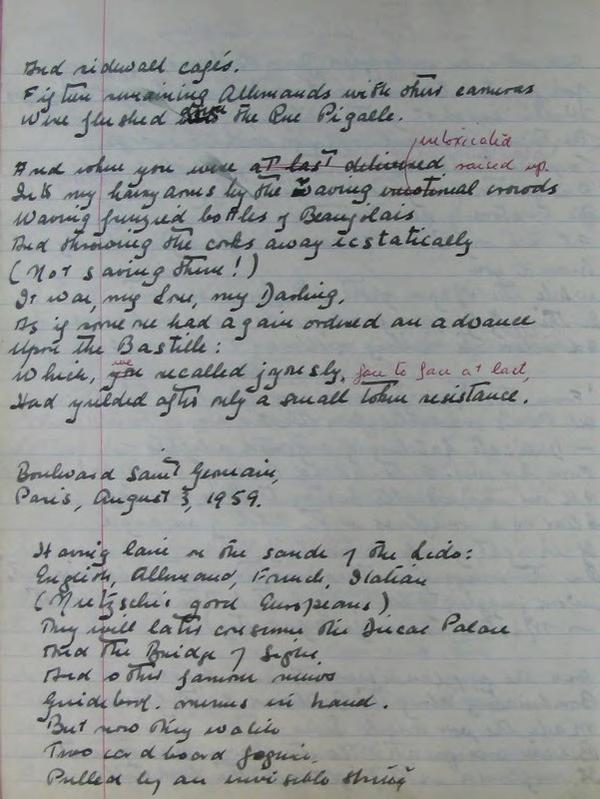 And sidewall cafés.
Fifteen remaining Allemands with their cameras
Were flushed the Rue Pigalle.
intoxicated
And when you were at last delivered raised up
Into my hairy arms by the waving crowds
Waving fringed bottles of Beaujolais
And throwing the corks away ecstatically
(Not saving them!)
It was, my Love, my Darling,
As if someone had again ordered an advance
Upon the Bastille:
we
Which, you recalled joyously, face to face at last,
Had yielded after only a small token resistance.
Boulevard Saint Germain,
Paris, August 3, 1959.
Having lain on the sands of the Lido:
English, Allemand, French, Italian
(Nietzsche's good Europeans)
They will later consume the Ducal Palace
And the Bridge of Sighs,
And other famous views
Guidebook menus in hand.
But now they watch
Two cardboard figures,
Pulled by an invisible string